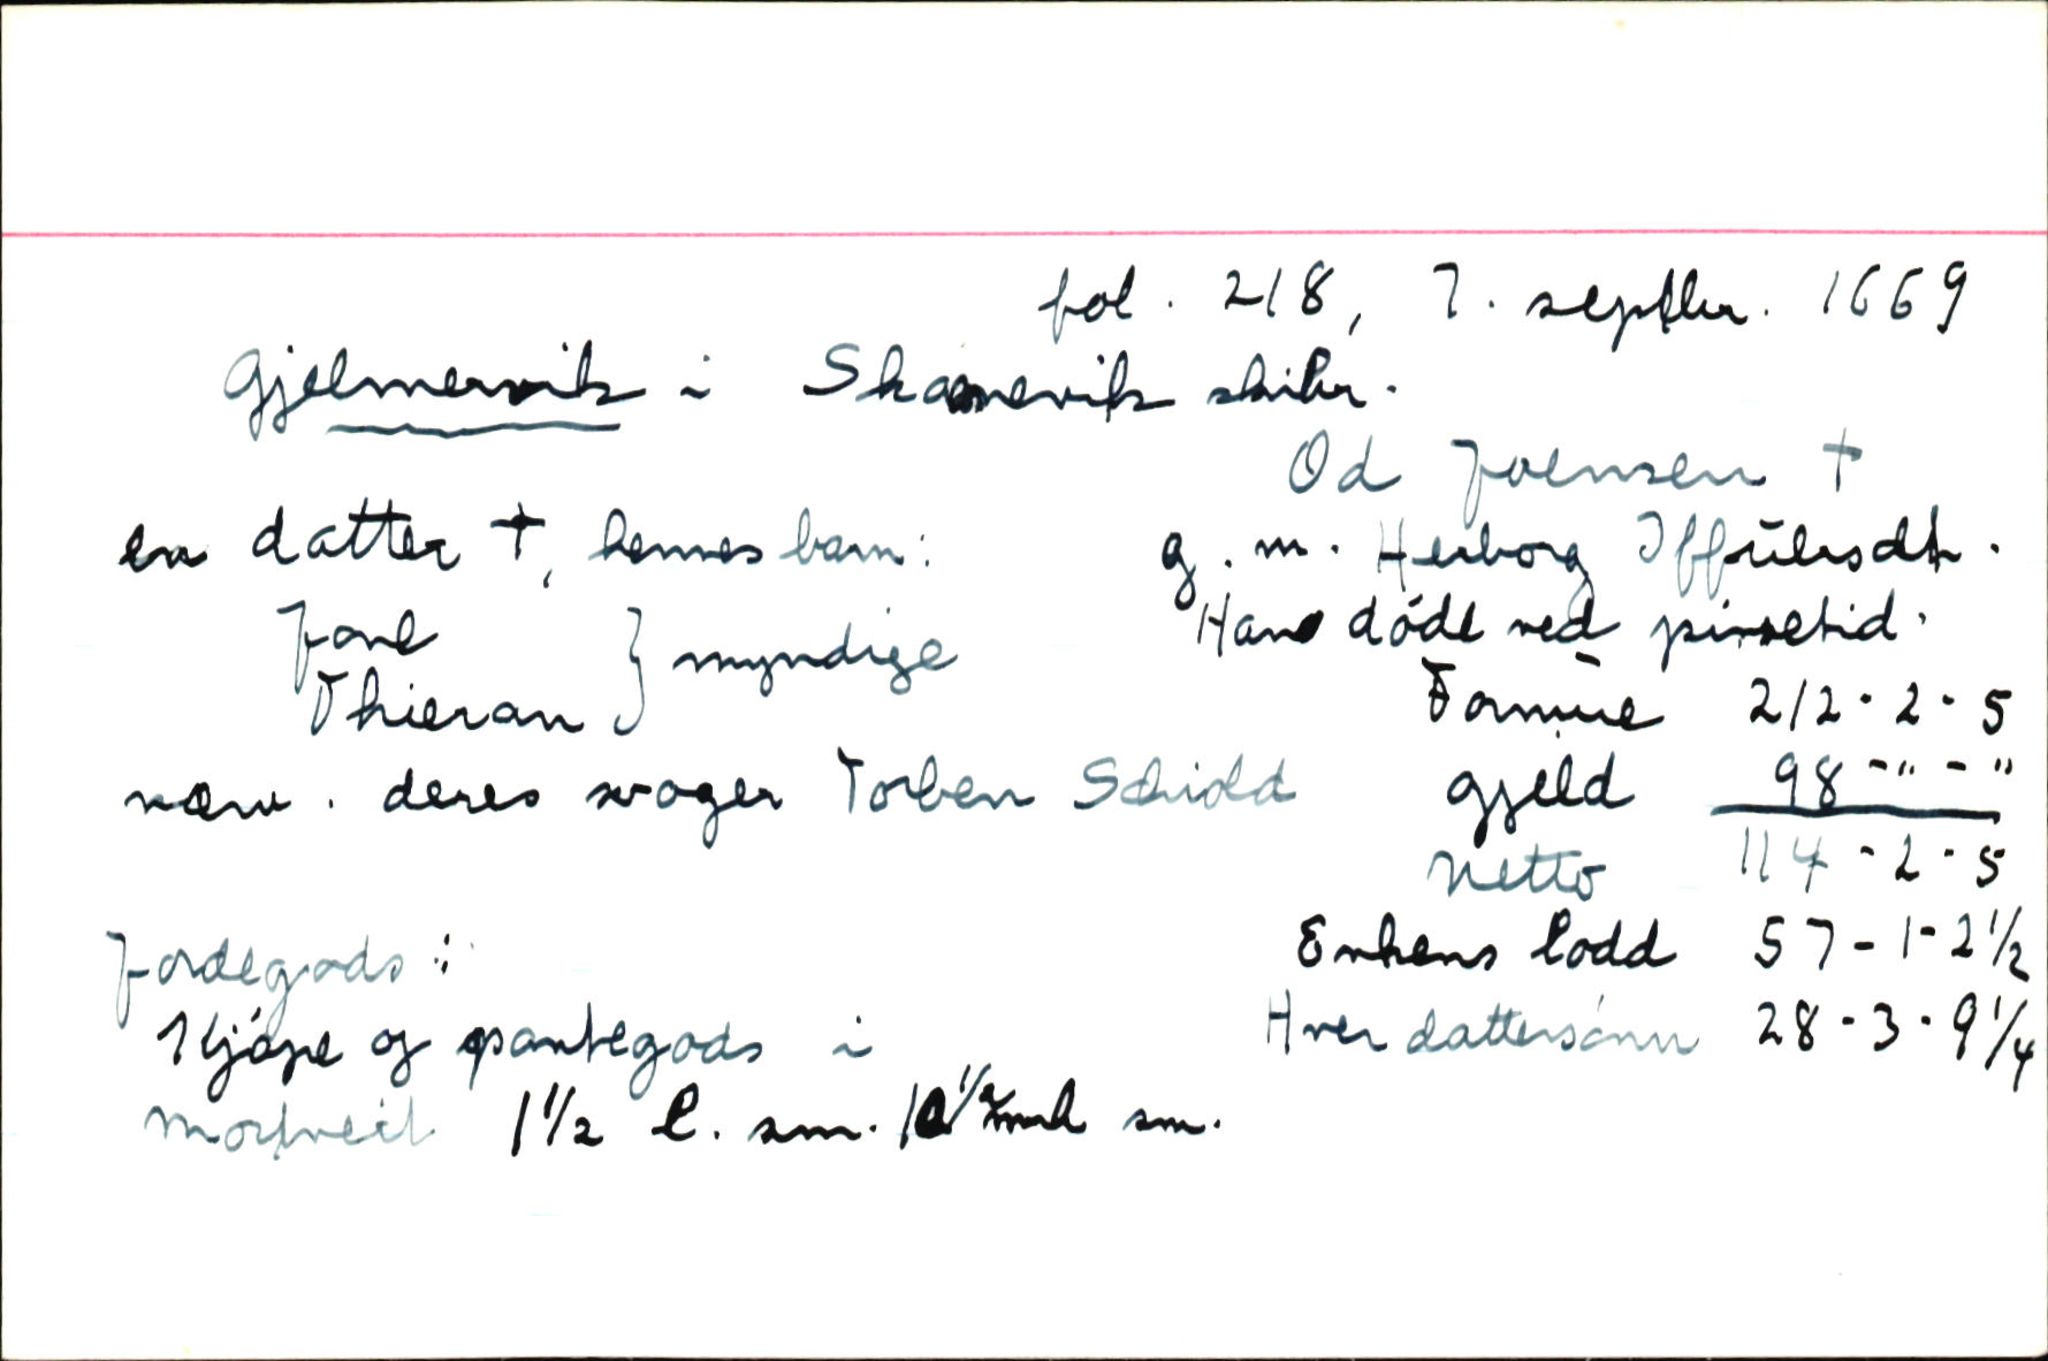 fol. 218, 7. septbr. 1669
Gjelmervik i Skaanevik skibr.
Od Joensen †
g. m. Herborg Iffuersdtr.
Hand döde ved pinsetid.
en datter †, hennes barn:
Jone
Thieran } myndige
værv. deres svoger Torben Schiold
Formue 212 - 2 - 5
gjeld 98 - " - "
Netto 114 - 2 - 5
Enkens lodd 57 - 1 - 2 1/2
Hver dattersönn 28 - 3 - 9 1/4
Jordegods:
Kjöpe og pantegods i
1 1/2 l. sm. sm.